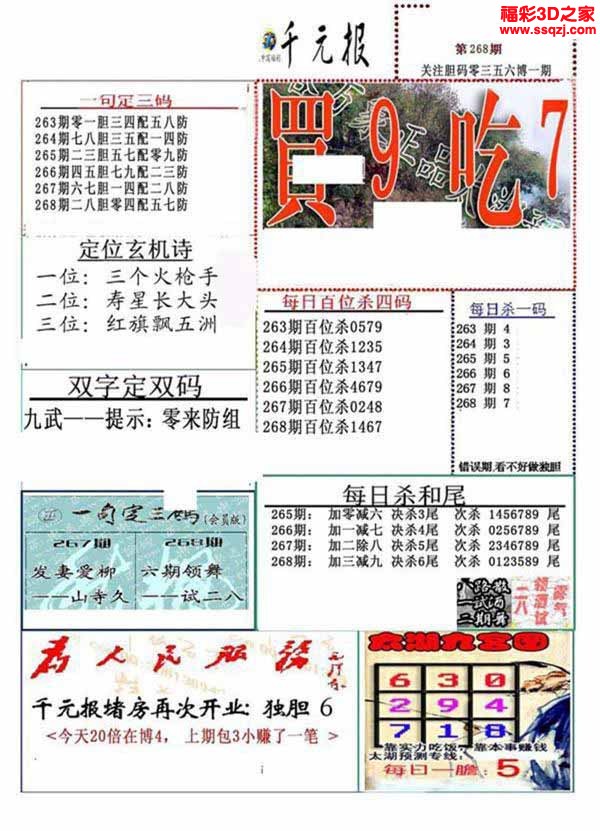 福彩3D之家
www.ssqzj.com
千元报
第268期
关注胆码零三五六博一期
一句定三码
263期零一胆三四配五八防
264期七八胆三五配一四防
265期二三胆五七配零九防
266期四五胆七九配二三防
267期六七胆一四配二八防
268期二八胆零四配五七防
買9吃7
定位玄机诗
一位：三个火枪手
二位：寿星长大头
三位：红旗飘五洲
每日百位杀四码
263期百位杀0579
264期百位杀1235
265期百位杀1347
266期百位杀4679
267期百位杀0248
268期百位杀1467
每日杀一码
263 期 4
264 期 3
265 期 5
266 期 6
267 期 8
268 期 7
错误期,看不好做独胆
双字定双码
九武——提示：零来防组
一句定三码(会员版)
267期
268期
发妻爱柳
六期领舞
——山寺久
——试二八
每日杀和尾
265期： 加零减六 决杀3尾 次杀 1456789 尾
266期： 加一减七 决杀4尾 次杀 0256789 尾
267期： 加二除八 决杀5尾 次杀 2346789 尾
268期： 加三减九 决杀6尾 次杀 0123589 尾
为人民服务
千元报堵房再次开业：独胆 6
<今天20倍在博4， 上期包3小赚了一笔 >
太湖九宫图
6 3 0
2 9 4
7 1 8
靠实力吃饭，靠本事赚钱
太湖预测专线：
每日一胆：5